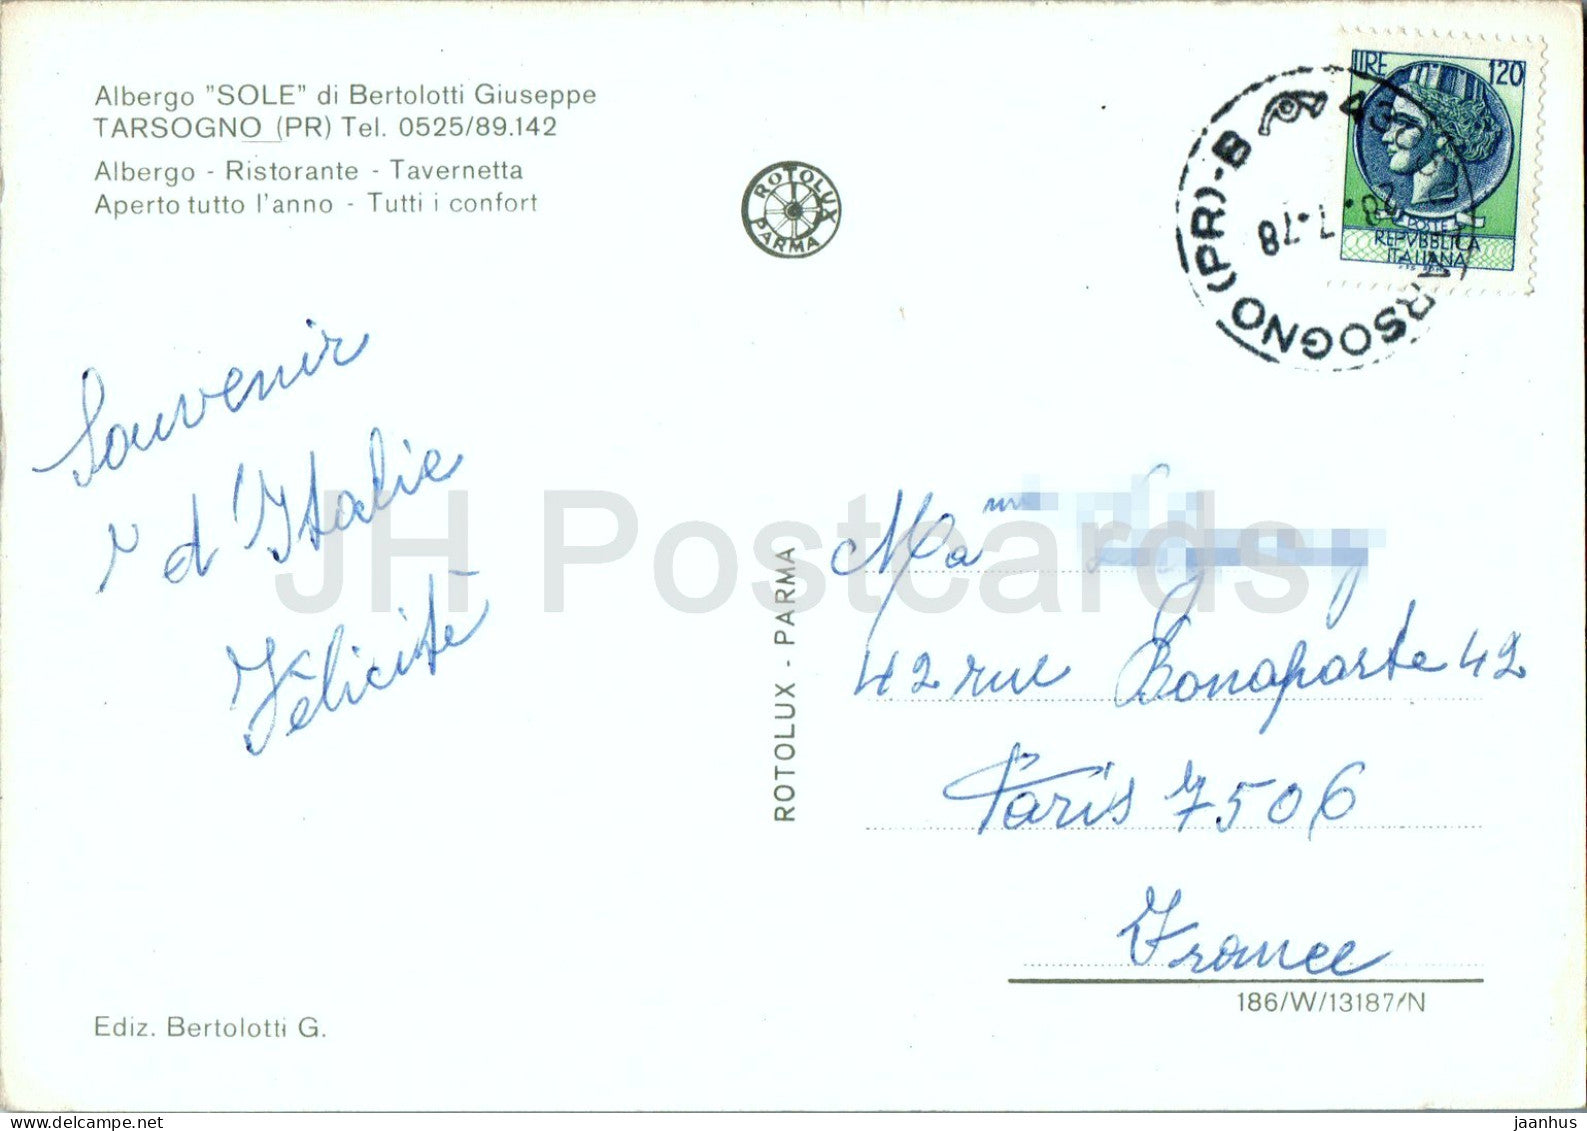 Albergo "SOLE" di Bertolotti Giuseppe
TARSOGNO (PR) Tel. 0525/89.142
Albergo - Ristorante - Tavernetta
Aperto tutto l'anno - Tutti i confort
ROTOLUX
PARMA
LIRE 120
POSTE
REPVBBLICA
ITALIANA
TARSOGNO (PR)-B
8.7.78
Souvenir
d'Italie
Félicité
JH Postcards
ROTOLUX - PARMA
Ma
42 rue Bonaparte 42
Paris 7506
France
186/W/13187/N
Ediz. Bertolotti G.
jaanhus